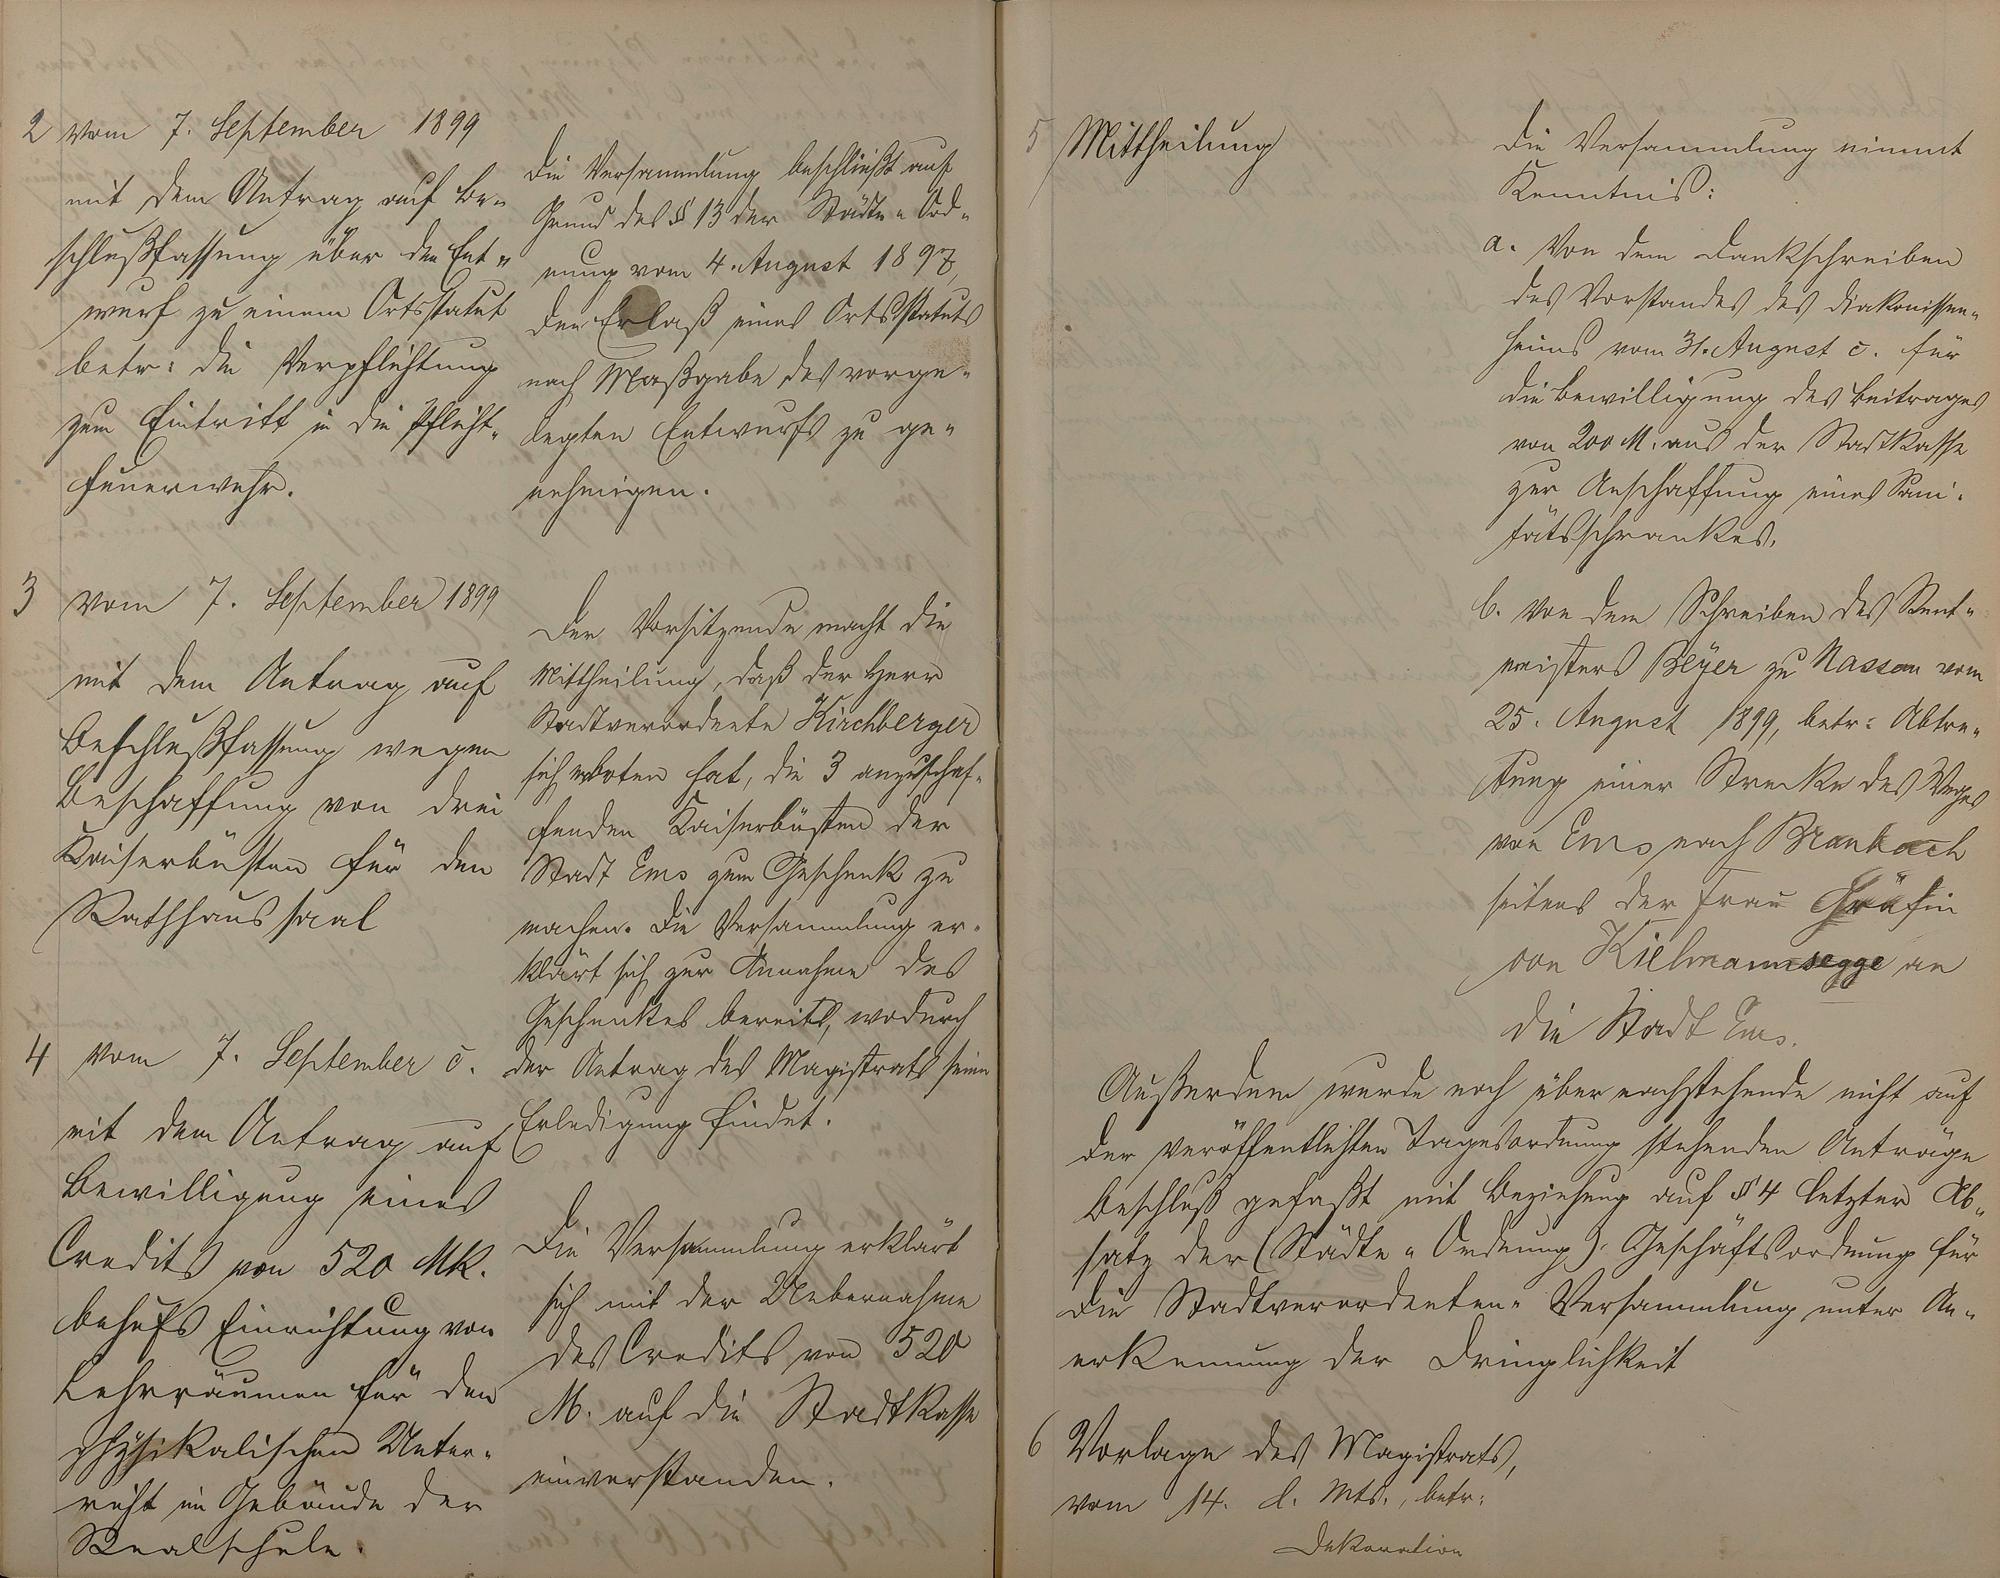 2 vom 7. September 1899
mit dem Antrag auf Be-
schlußfassung über den Ent-
wurf zu einem Ortsstatut
betr: die Verpflichtung
zum Eintritt in die Pflicht-
feuerwehr.
Die Versammlung beschließt auf
Grund des § 13 der Städte-Ord-
nung vom 4. August 1897,
den Erlaß eines Ortsstatuts
nach Maßgabe des vorge-
legten Entwurfs zu ge-
nehmigen.
3 vom 7. September 1899
mit dem Antrag auf
Beschlußfassung wegen
Beschaffung von drei
Kaiserbüsten für den
Rathhaussaal
Der Vorsitzende macht die
Mittheilung, daß der Herr
Stadtverordnete Kirchberger
sich erboten hat, die 3 anzuschaf-
fenden Kaiserbüsten der
Stadt Ems zum Geschenk zu
machen. Die Versammlung er-
klärt sich zur Annahme des
Geschenkes bereits, wodurch
der Antrag des Magistrats seine
Erledigung findet.
4 vom 7. September c.
mit dem Antrag auf
Bewilligung eines
Credits von 520 Mk.
behufs Einrichtung von
Lehrräumen für den
physikalischen Unter-
richt im Gebäude der
Realschule.
Die Versammlung erklärt
sich mit der Uebernahme
des Credits von 520
M. auf die Stadtkasse
einverstanden.
5 Mittheilung
Die Versammlung nimmt
Kenntniß:
a. Von dem Dankschreiben
des Vorstandes des Diakonissen-
heims vom 31. August c. für
die Bewilligung des Beitrages
von 200 M. aus der Stadtkasse
zur Anschaffung eines Sani-
tätsschrankes.
b. Von dem Schreiben des Rent-
meisters Beÿer zu Nassau vom
25. August 1899, betr: Abtre-
tung einer Strecke des Weges
von Ems nach Braubach
seitens der Frau Gräfin
von Kielmannsegge an
die Stadt Ems.
Außerdem wurde noch über nachstehende nicht auf
der veröffentlichten Tagesordnung stehenden Anträge
Beschluß gefaßt mit Beziehung auf § 4 letzter Ab-
satz der (Städte-Ordnung) Geschäftsordnung für
die Stadtverordneten-Versammlung unter An-
erkennung der Dringlichkeit
6 Vorlage des Magistrats,
vom 14. d. Mts., betr:
Dekoration